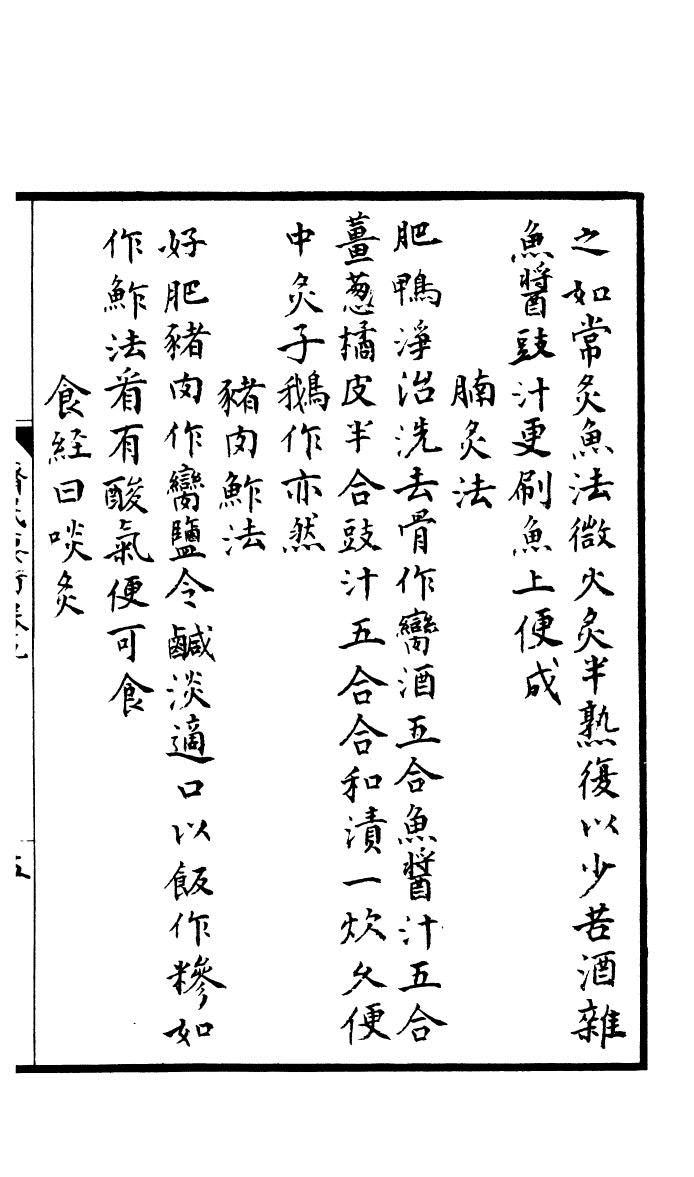 之如常炙魚法微火炙半熟復以少苦酒雜
魚醬豉汁更刷魚上便成
腩炙法
肥鴨淨治洗去骨作臠酒五合魚醬汁五合
薑葱橘皮半合豉汁五合合和漬一炊久便
中炙子鵝作亦然
豬肉鮓法
好肥豬肉作臠鹽令鹹淡適口以飯作糝如
作鮓法看有酸氣便可食
食經曰啖炙